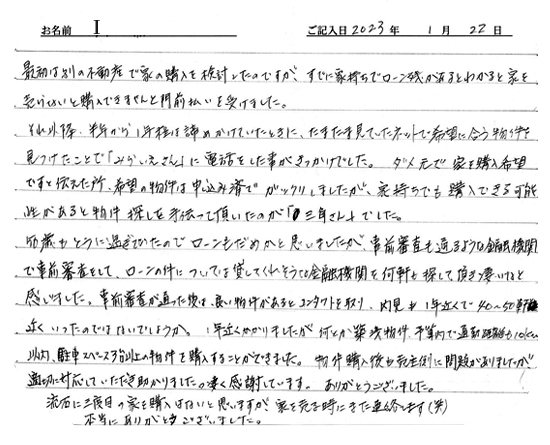 お名前 I ご記入日 2023年 1月 22日
最初は別の不動産で家の購入を検討したのですが、すでに家持ちでローン残があるとわかると家を
売らないと購入できませんと門前払いを受けました。
それ以降、半年から1年程は諦めかけていたときに、たまたま見ていたネットで希望に合う物件を
見つけたことで「みらいえさん」に電話をした事がきっかけでした。ダメ元で家を購入希望
ですと伝えた所、希望の物件は申込み済でガックリしましたが、家持ちでも購入できる可能
性があると物件探しを手伝って頂いたのが「三年さん」でした。
歳もとうに過ぎていたのでローンもだめかと思いましたが、事前審査も通るような金融機関
で事前審査をして、ローンの件については貸してくれそうな金融機関を何軒と探して頂き凄いけると
感じました。事前審査が通った後は、良い物件があるとコンタクトを取り、内見も1年近くで40〜50軒
近くいったのではないでしょうか。1年近くかかりましたが何とか築浅物件、予算内で通勤距離も10km
以内、駐車スペース3台以上の物件を購入することができました。物件購入後も売主側に問題がありましたが
適切に対応していただき助かりました。凄く感謝しています。ありがとうございました。
流石に三度目の家を購入はないと思いますが家を売る時にまた連絡します(笑)
本当にありがとうございました。